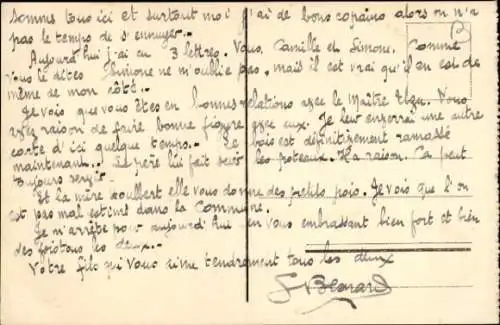 sommes tous ici et surtout moi j'ai de bons copains alors on n'a
pas le temps de s'ennuyer.-
Aujourd'hui j'ai eu 3 lettres. Vous, Camille et Simone. Comme
vous le dites Simone ne m'oublie pas, mais il est vrai qu'il en est de
même de mon côté.-
Je vois que vous êtes en bonnes relations avec le Maître Vous
avez raison de faire bonne figure avec eux. Je leur enverrai une autre
carte d'ici quelque temps.- Le bois est définitivement ramassé
maintenant. Le père lui fait les poteaux. Il a raison. Ca peut
toujours servir.
Et la mère elle vous donne des petits pois. Je vois que l'on
est pas mal estimé dans la Commune.
Je m'arrête pour aujourd'hui en vous embrassant bien fort et bien
des les deux.-
Votre fils qui vous aime tendrement tous les deux
Bernard